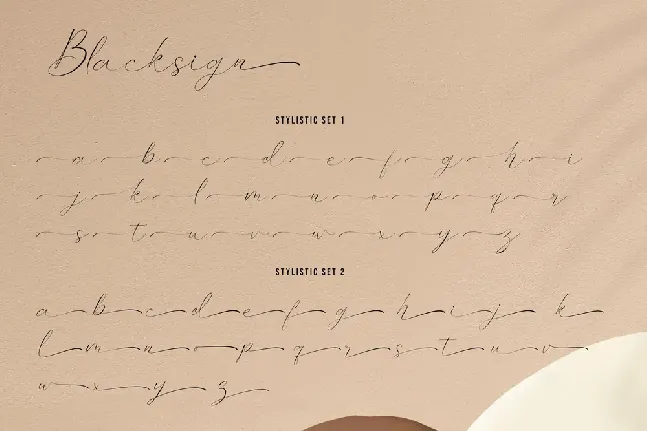 Blacksign
STYLISTIC SET 1
a b c d e f g h i
j k l m n o p q r
s t u v w x y z
STYLISTIC SET 2
a b c d e f g h i j k
l m n o p q r s t u v
w x y z